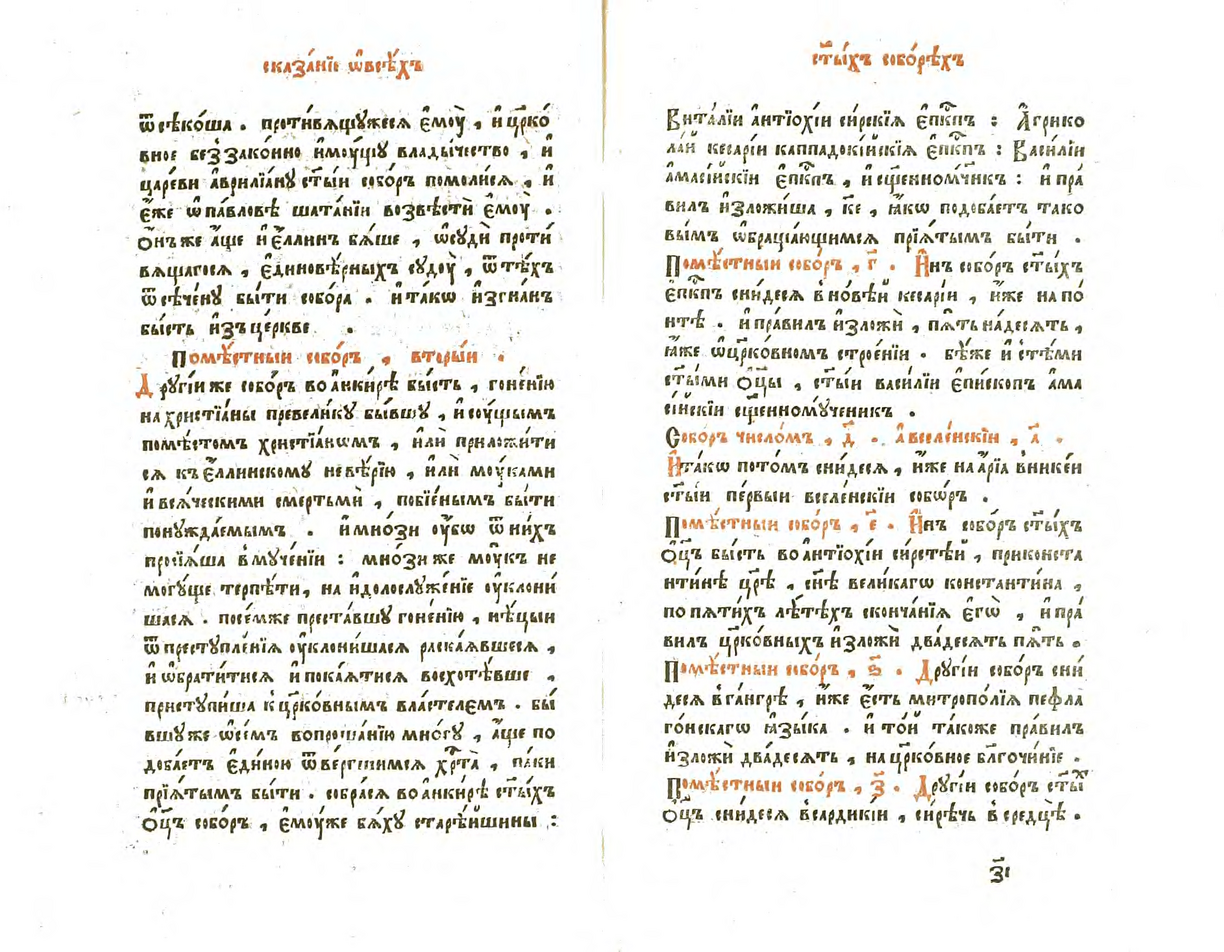 сказа́нїе ѡ҆всѣ́хъ
ѿсѣко́ша . проти́вѧщꙋжесѧ є҆моу̀ , и҆ цр҃ко́
вное без̾зако́нно и҆моу́щꙋ влады́чество , и҆
царе́ви а҆врилїа́нꙋ ст҃ы́и собо́ръ помоли́сѧ , и҆
є҆́же ѡ҆ па́вловѣ шата́нїи возвѣстѝ є҆моу̀ .
Ѻ҆́нъже а҆́ще и҆ е҆́ллинъ бѧ́ше , ѡ҆сꙋдѝ проти́
вѧщагосѧ , є҆диновѣ́рныхъ сꙋдоу̀ , ѿ тѣ́хъ
ѿсѣ́ченꙋ бы́ти собо́ра . и҆та́кѡ и҆згна́нъ
бы́сть и҆зъ це́ркве .
Помѣ́стныи собо́ръ , вторы́и .
Дрꙋгі́иже собо́ръ во а҆нки́рѣ бы́сть , гоне́нїю
на хрⷭ҇тїа́ны превели́кꙋ бы́вшꙋ , и҆ соу́щымъ
помѣ́стомъ хрїстїа́нѡмъ , и҆лѝ приложи́ти
сѧ къ є҆́ллинскомꙋ невѣ́рїю , и҆лѝ моу́ками
и҆ всѧ́ческими сме́ртьмѝ , побїе́нымъ бы́ти
понꙋжда́емымъ . и҆ мно́зи оу҆́бѡ ѿ ни́хъ
просїѧ́ша в̾мꙋче́нїи : мно́зиже моу́къ не
могꙋ́ще терпѣ́ти , на и҆долослꙋже́нїе оу҆клони́
шасѧ . посе́мже преста́вшꙋ гоне́нїю , нѣ́цыи
ѿ престꙋпле́нїѧ оу҆клони́шасѧ раска́ѧвшесѧ ,
и҆ ѡ҆брати́тисѧ и҆ пока́ѧтисѧ восхотѣ́вше ,
пристꙋпи́ша к̾ цр҃ко́внымъ вла́стелем . бы́
вшꙋже ѡ҆се́мъ вопроша́нїю мно́гꙋ , а҆́ще по
доба́етъ є҆ди́ною ѿве́ргшимсѧ хрⷭ҇та̀ , па́ки
прїѧ́тымъ бы́ти . собра́сѧ во а҆нки́рѣ ст҃ы́хъ
Ѻ҆ц҃ъ собо́ръ , є҆моу́же бѧ́хꙋ старѣ́йшины :
ст҃ы́хъ собо́рѣхъ
Вита́лїи а҆нтїохі́и си́рскїѧ є҆пⷭ҇кпъ : А҆грико
ла́й кесарі́и каппадокі́йскїѧ є҆пⷭ҇кпъ : Васи́лїи
а҆масі́йскїи є҆пⷭ҇кпъ , и҆ сщ҃енномч҃никъ : и҆ пра́
вилъ и҆зложи́ша , к҃е , ꙗ҆́кѡ подоба́етъ тако
вы́мъ ѡ҆браща́ющимсѧ прїѧ́тымъ бы́ти .
Помѣ́стныи собо́ръ , г҃ . И҆́нъ собо́ръ ст҃ы́хъ
є҆пⷭ҇кпъ сни́десѧ в̾но́вѣй кесарі́и , и҆́же на по́
нтѣ . и҆ пра́вилъ и҆зложѝ , пѧ́ть на́десѧть ,
ꙗ҆́же ѡ҆ цр҃ко́вном строе́нїи . бѣ́же и҆ с̾тѣ́ми
ст҃ы́ми ѻ҆ц҃ы̀ , ст҃ы́и васи́лїи є҆пи́скопъ а҆ма
сі́йскїи сщ҃енномꙋ́ченикъ .
Собо́ръ число́мъ , д҃ . а҆ вселе́нскїи , а҃ .
И҆та́кѡ пото́мъ сни́десѧ , и҆́же на а҆́рїа в̾нике́и
ст҃ы́и пе́рвыи вселе́нскїи собѡ́ръ .
Помѣ́стныи собо́ръ , е҃ . И҆́нъ собо́ръ ст҃ы́хъ
Ѻ҆ц҃ъ бы́сть во а҆нтїохі́и си́рстѣй , при конста
нти́нѣ цр҃ѣ , сн҃ѣ вели́кагѡ константи́на ,
по пѧти́хъ лѣ́тѣхъ сконча́нїѧ є҆гѡ̀ , и҆ пра́
вилъ цр҃ко́вныхъ и҆зложѝ два́десѧть пѧ́ть .
Помѣ́стныи собо́ръ , ѕ҃ . Дрꙋгі́и собо́ръ сни́
десѧ в̾га́нгрѣ , и҆́же є҆́сть митропо́лїѧ пефла
го́нскагѡ ꙗ҆зы́ка . и҆ то́й та́коже пра́вилъ
и҆зложѝ два́десѧть , на цр҃ко́вное бл҃гочи́нїе .
Помѣ́стныи собо́ръ , з҃ . Дрꙋгі́и собо́ръ ст҃ы́х
Ѻ҆ц҃ъ сни́десѧ в̾сардикі́и , си́рѣчь в̾ средцѣ̀ .
з҃і